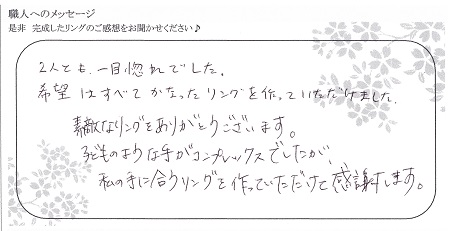 職人へのメッセージ
是非 完成したリングのご感想をお聞かせください♪
2人とも、一目惚れでした。
希望はすべてかなったリングを作っていただけました。
素敵なリングをありがとうございます。
子どものような手がコンプレックスでしたが、
私の手に合うリングを作っていただけて感謝します。